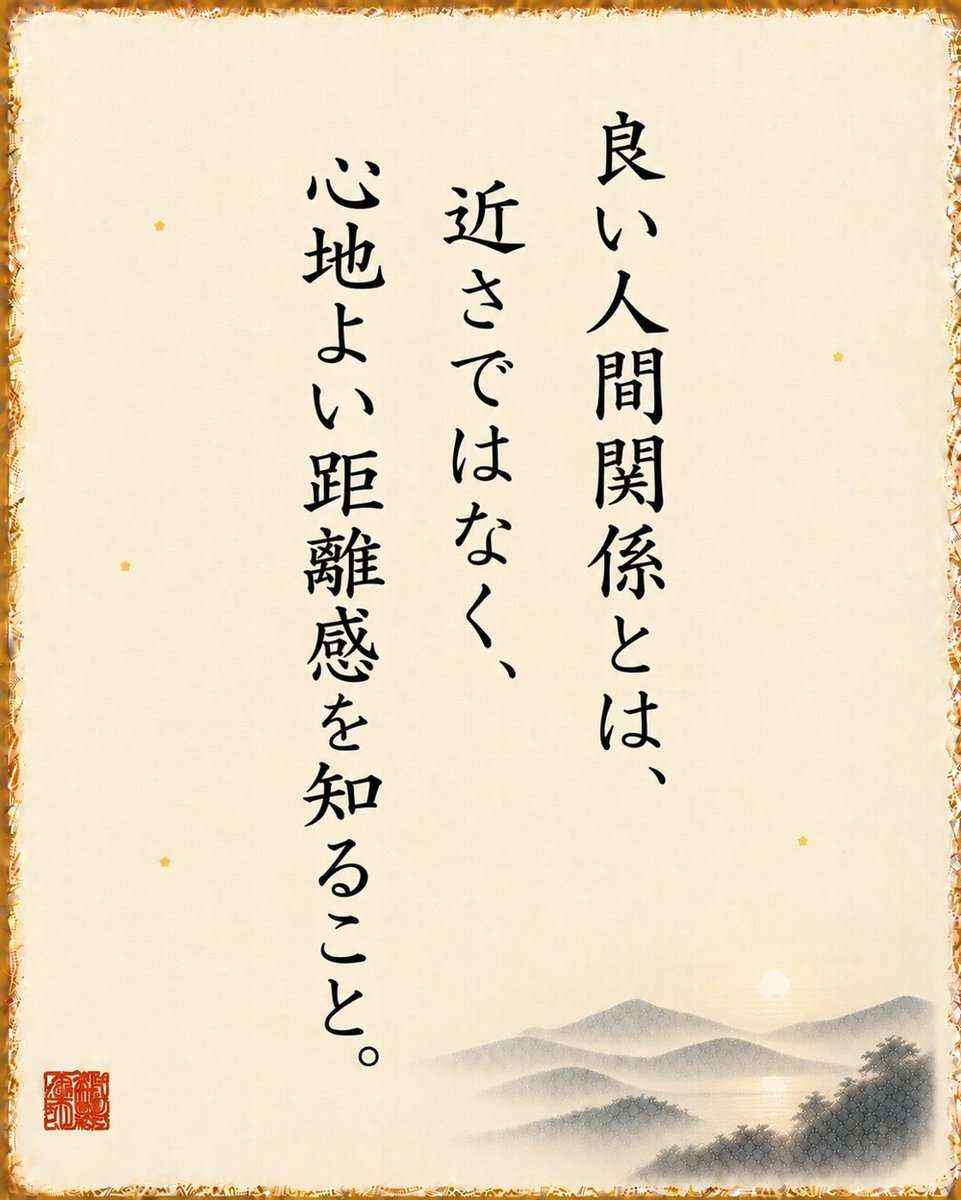 良い人間関係とは、
近さではなく、
心地よい距離感を知ること。